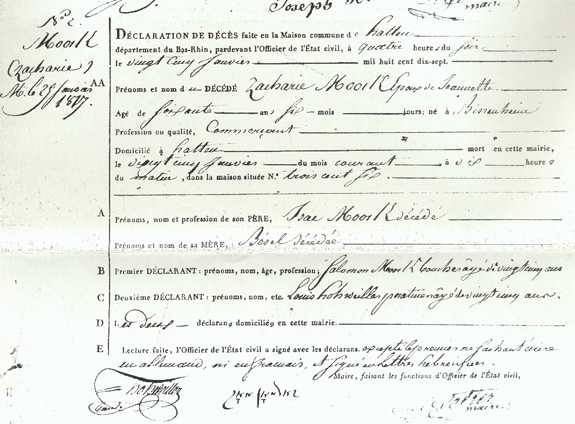 Joseph
maire
No. 2.
Moock
Zacharie
M. le 25 Janvier
1817.
DÉCLARATION DE DÉCÈS faite en la Maison commune de hatten
département du Bas-Rhin, pardevant l'Officier de l'État civil, à quatre heures du soir
le vingt cinq janvier mil huit cent dix-sept.
AA Prénoms et nom du DÉCÉDÉ Zacharie Moock Epoux de Jeannette
Agé de soixante ans six mois jours; né à
Profession ou qualité, Commerçant
Domicilié à hatten mort en cette mairie,
le vingt cinq janvier du mois courant à dix heures
du matin, dans la maison située N.° trois cent six
A Prénoms, nom et profession de son PÈRE, Isac Moock décédé
Prénoms et nom de sa MÈRE, Bésel décédée
B Premier DÉCLARANT : prénoms, nom, âge, profession; Salomon Moock boucher âgé de vingt cinq ans
C Deuxième DÉCLARANT : prénoms, nom, etc. Louis âgé de vingt cinq ans
D Les deux déclarans domiciliés en cette mairie.
E Lecture faite, l'Officier de l'État civil a signé avec les déclarans. excepté le premier ne sachant écrire
en allemand, ni en français, et signé en lettres hebreuses.
Maire, faisant les fonctions d'Officier de l'État civil,
maire